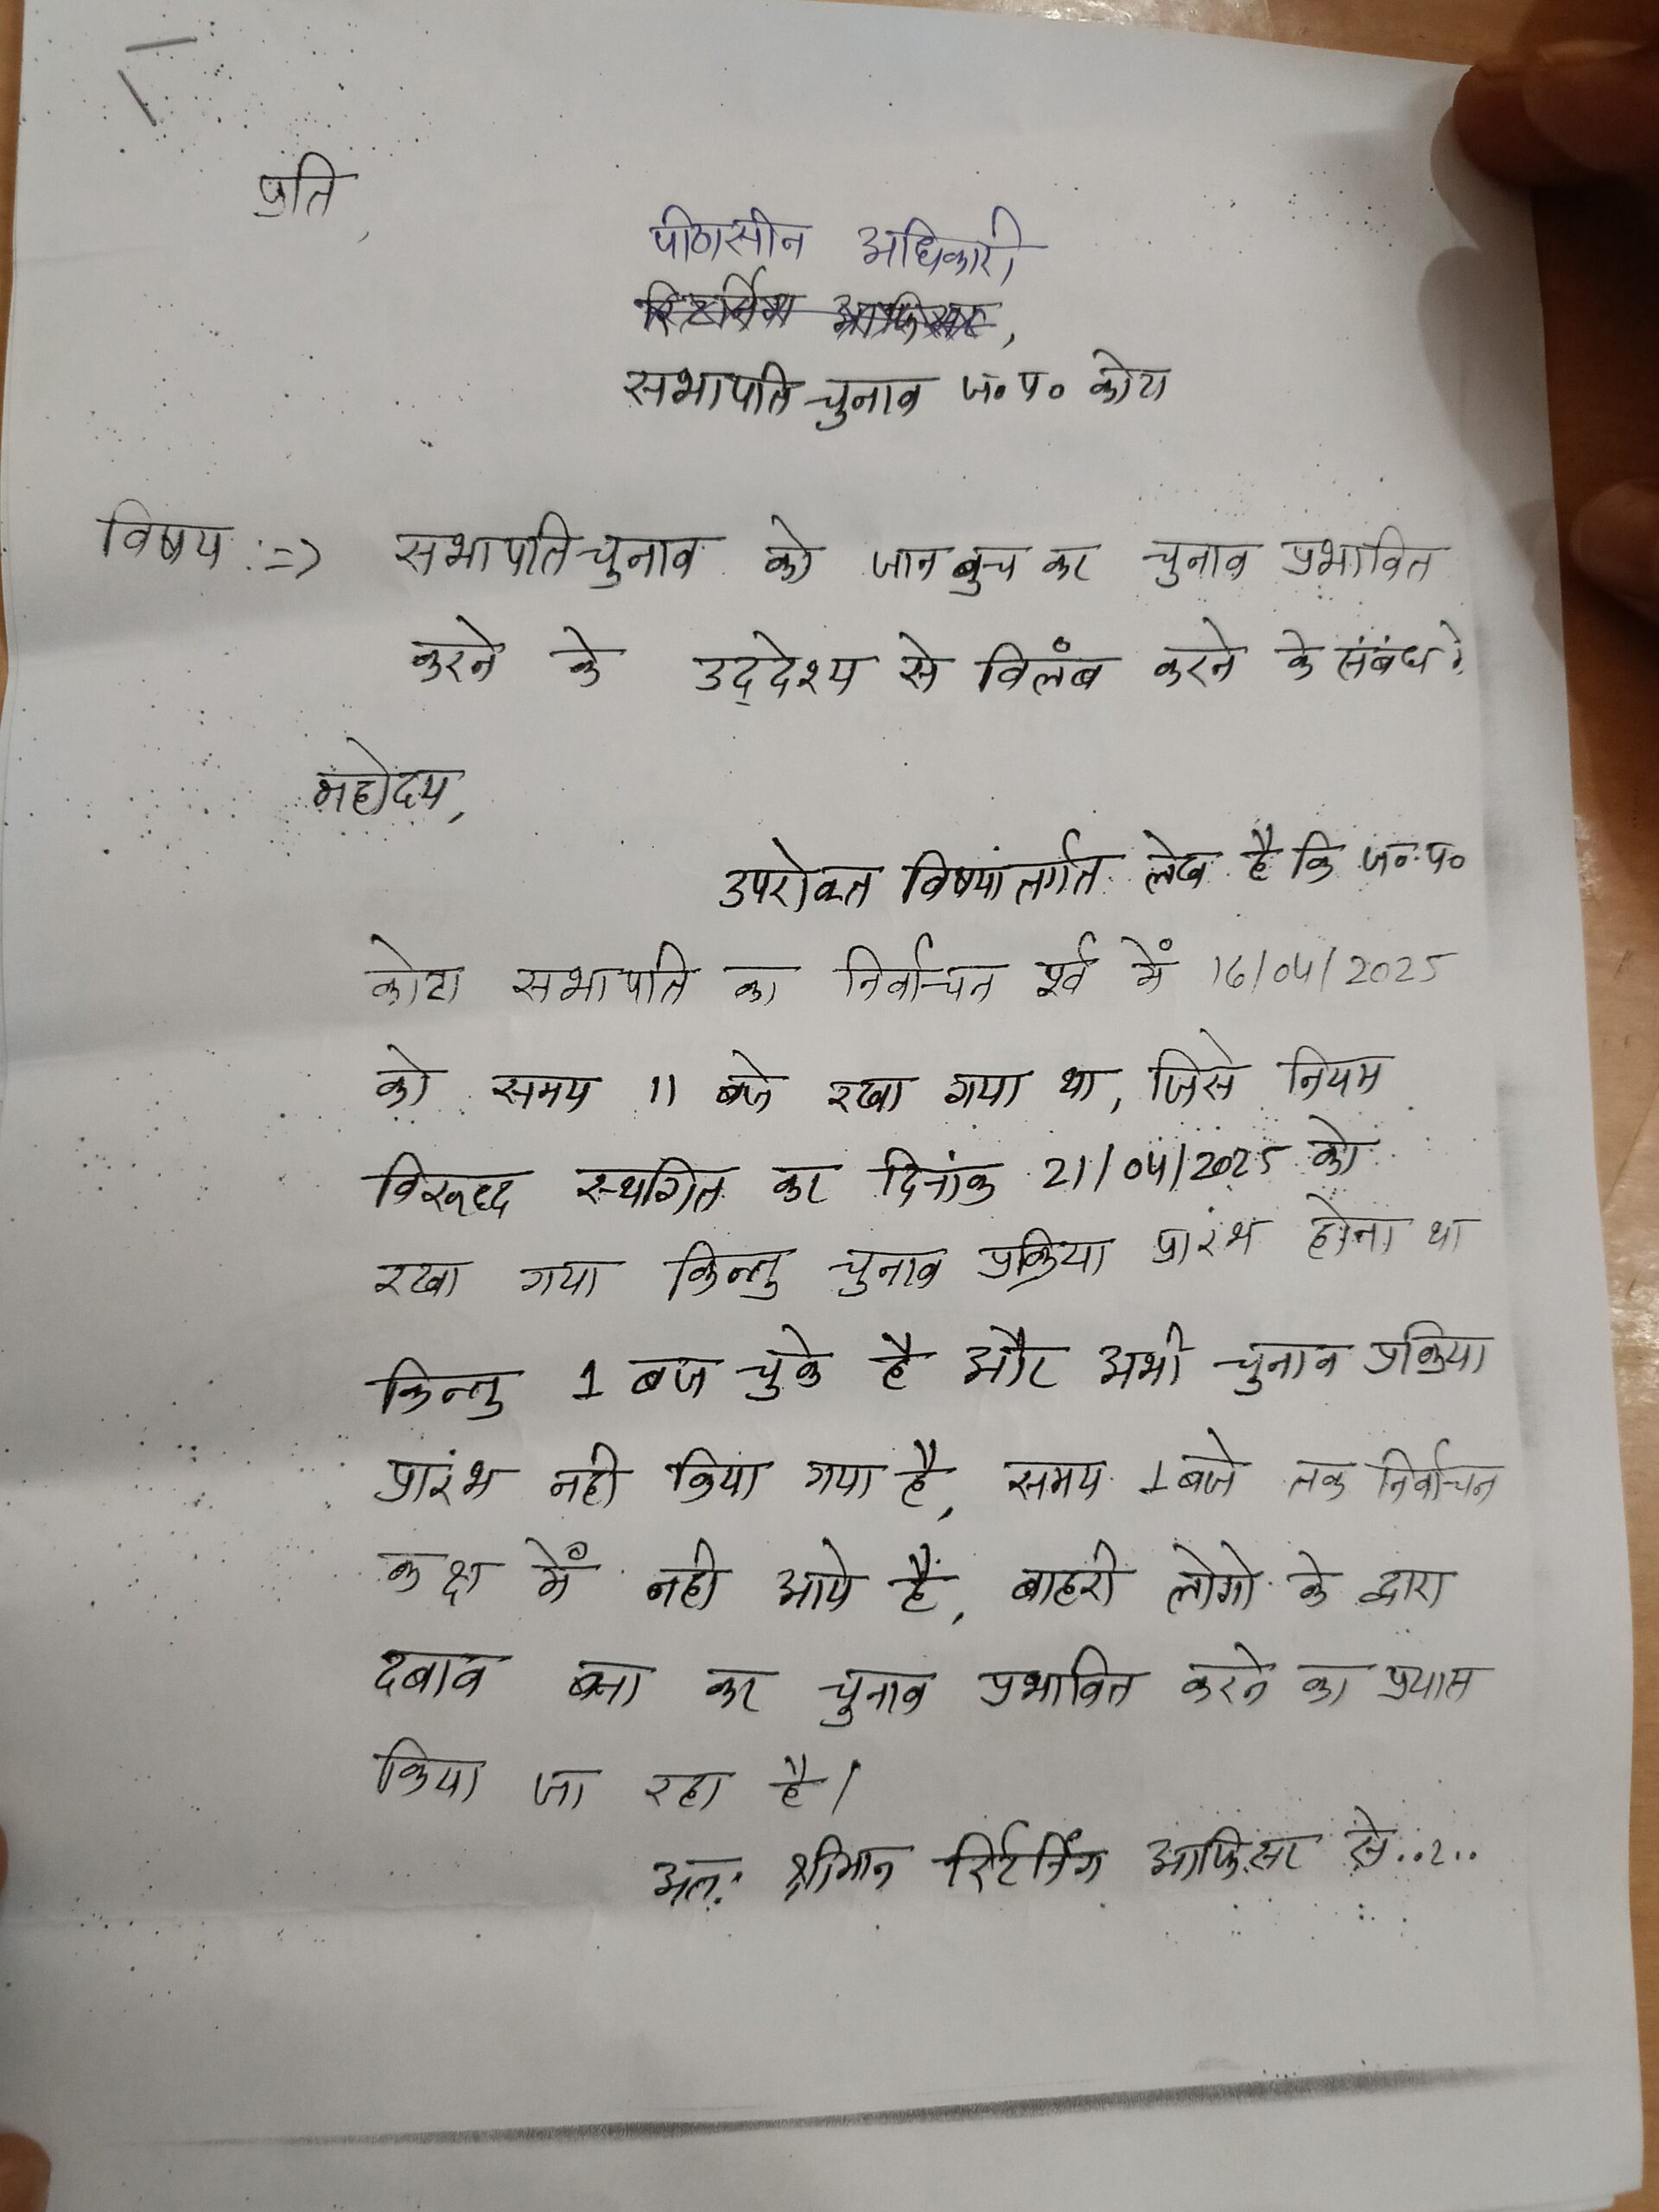 प्रति,
पीठासीन अधिकारी
रिटर्निंग आफिसर,
सभापति चुनाव ज॰प॰ कोटा
विषय :=> सभापति चुनाव को जान बुच कर चुनाव प्रभावित
करने के उद्देश्य से विलंब करने के संबंध में
महोदय,
उपरोक्त विषयांतर्गत लेख है कि ज॰प॰
कोटा सभापति का निर्वाचन पूर्व में 16/04/2025
को समय 11 बजे रखा गया था, जिसे नियम
विरूद्ध स्थगित कर दिनांक 21/04/2025 को
रखा गया किन्तु चुनाव प्रक्रिया प्रारंभ होना था
किन्तु 1 बज चुके है और अभी चुनाव प्रक्रिया
प्रारंभ नही किया गया है, समय 1 बजे तक निर्वाचन
कक्ष में नही आये हैं, बाहरी लोगो के द्वारा
दबाव बना कर चुनाव प्रभावित करने का प्रयास
किया जा रहा है।
अतः श्रीमान रिर्टर्निंग आफिसर से..2..